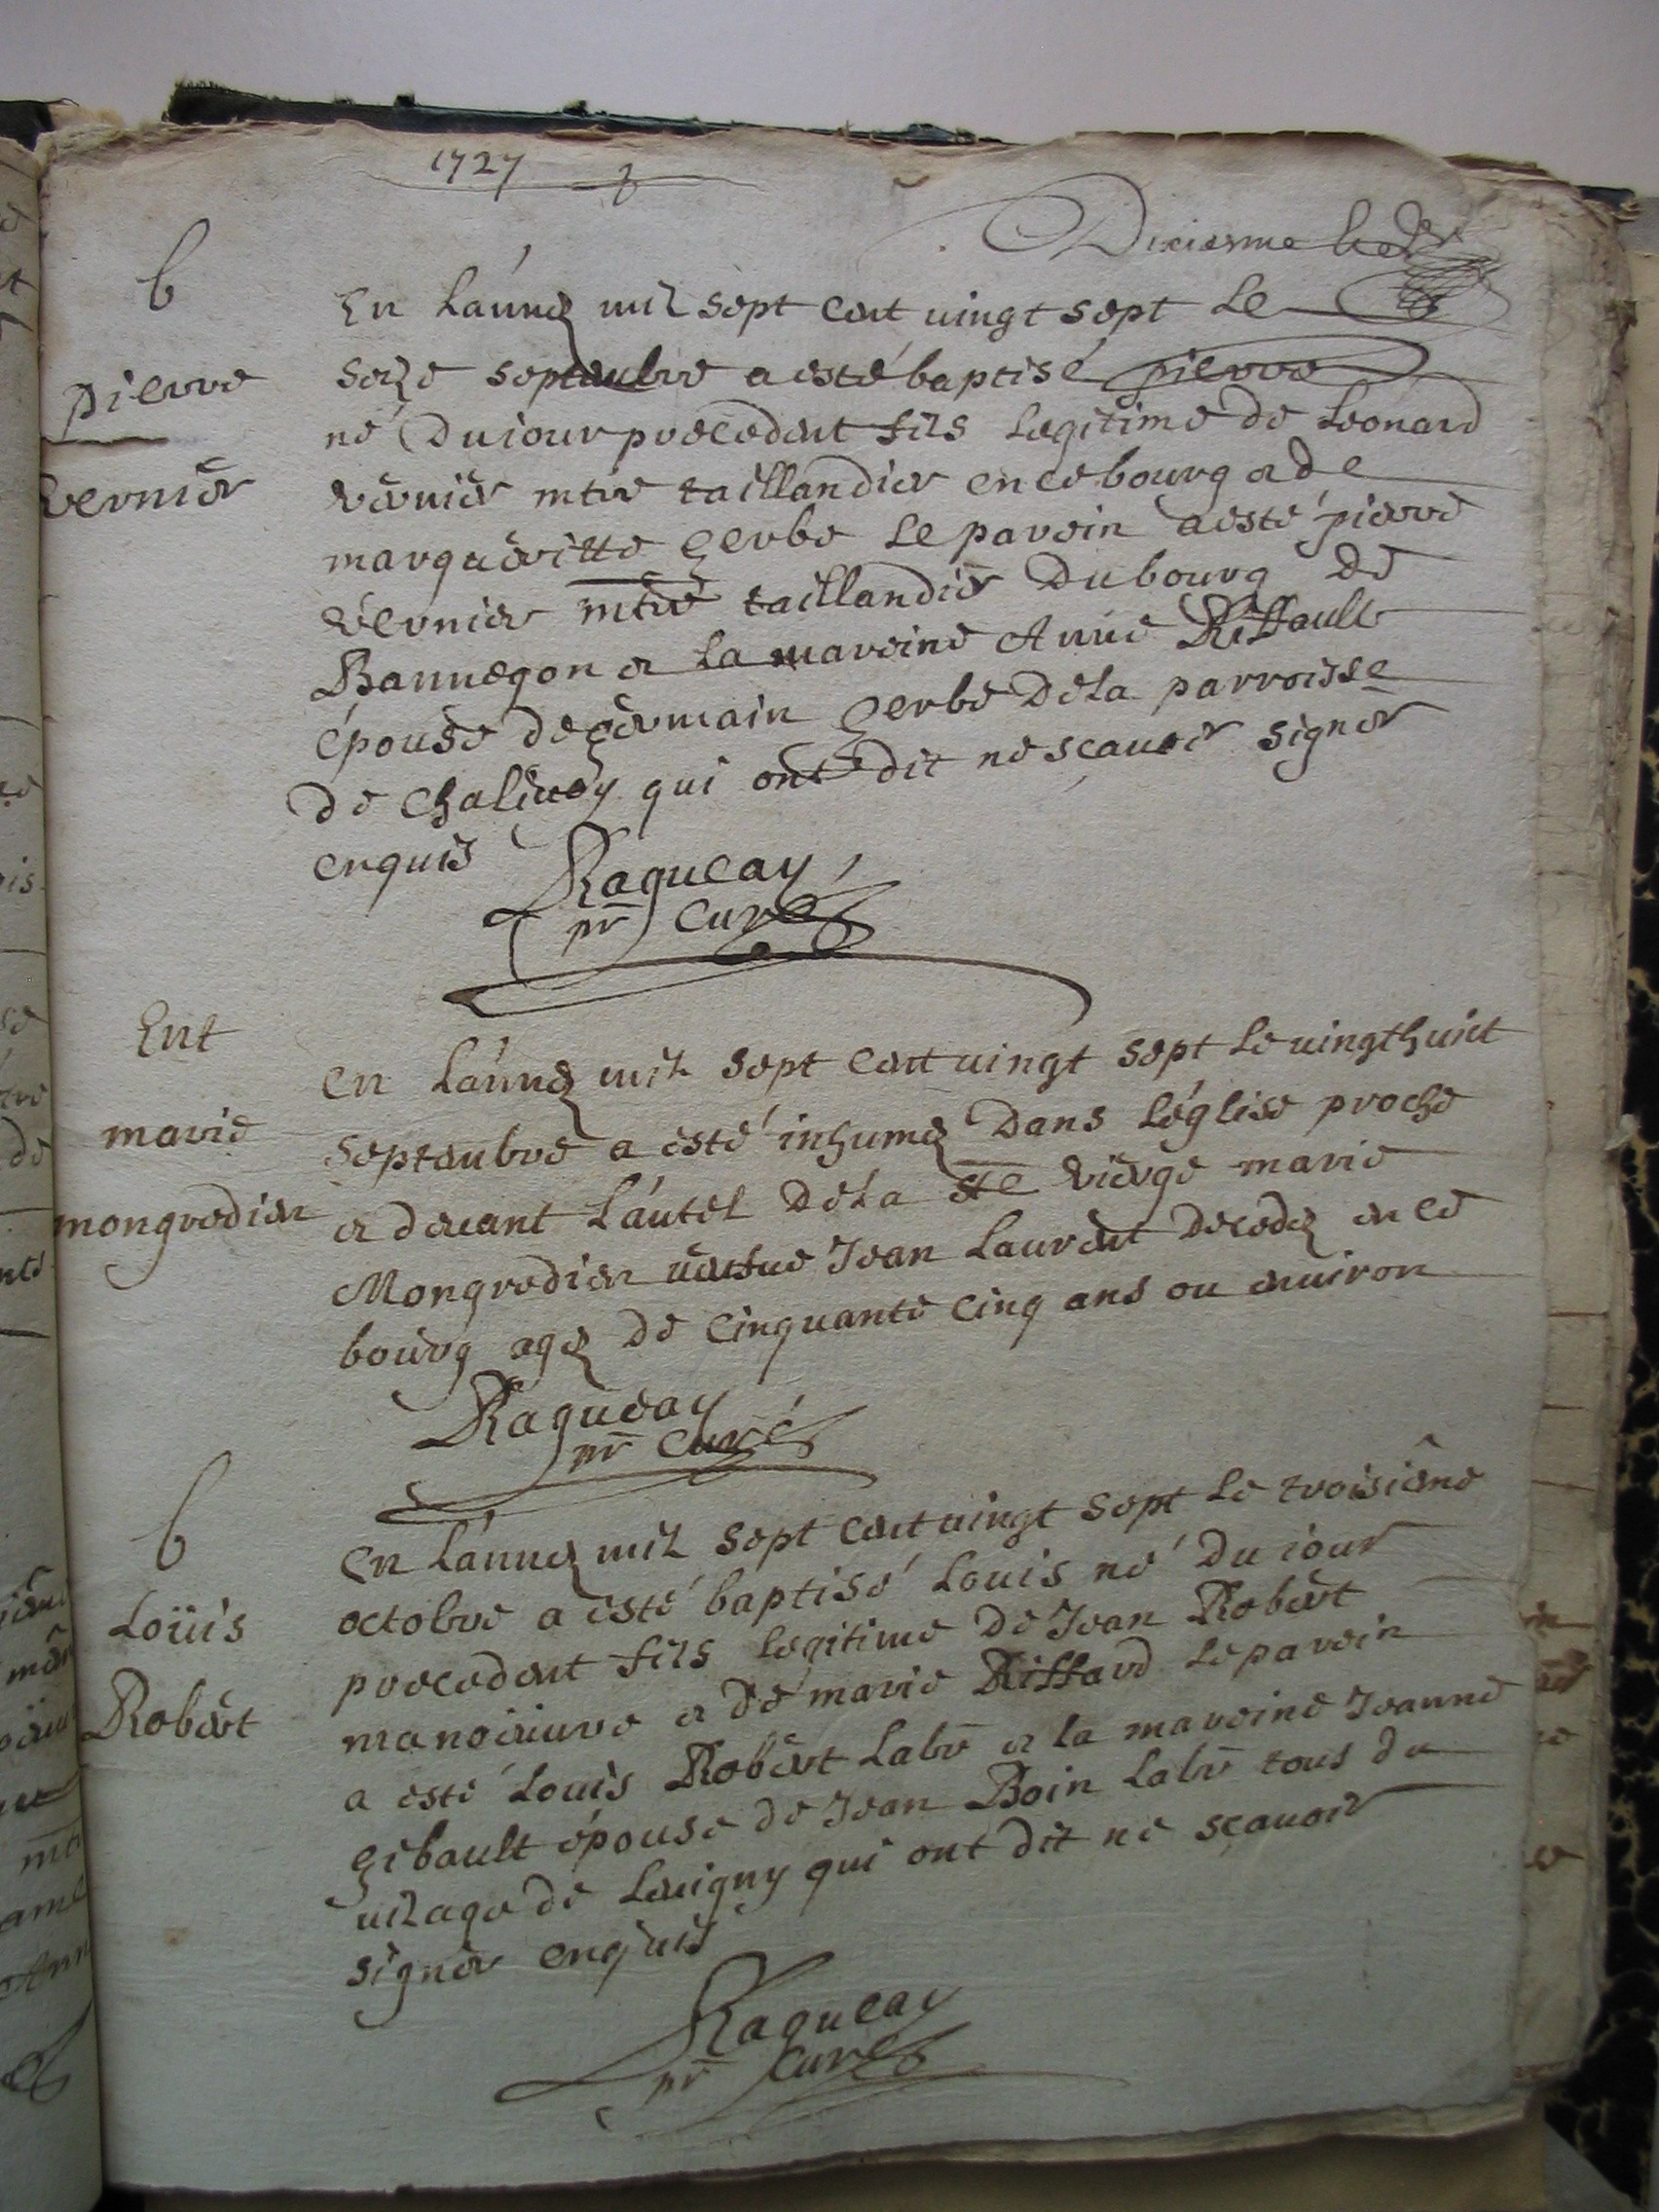 1727
Dixiesme
b
pierre
vernier
En l'année mil sept cent vingt sept le
seize septembre a esté baptisé pierre
né du jour precedent fils legitime de Leonard
vernier mtre taillandier en ce bourg et de
marguéritte gerbe le parein a esté pierre
vernier mtre taillandier du bourg de
Bannegon et la mareine Anne Riffault
épouse de germain gerbe de la parroisse
de chalivoy qui ont dit ne scauoir signer
enquis
Ragueau
pr Curé
Ent
marie
mongredien
en l'année mil sept cent vingt sept le vingt huict
septembre a esté inhumée dans l'église proche
et deuant l'autel de la ste vierge marie
Mongredien veufue Jean Laurent decedée en ce
bourg agée de cinquante cinq ans ou enuiron
Ragueau
pr curé
b
Loüis
Robert
en l'année mil sept cent vingt sept le troisiême
octobre a esté baptisé Louis né du jour
precedent fils legitime de Jean Robert
manoeuure et de marie Riffard le parein
a esté Louis Robert labr et la mareine Jeanne
gibault épouse de Jean Boin labr tous du
vilage de Leuigny qui ont dit ne scauoir
signer enquis
Ragueau
pr curé